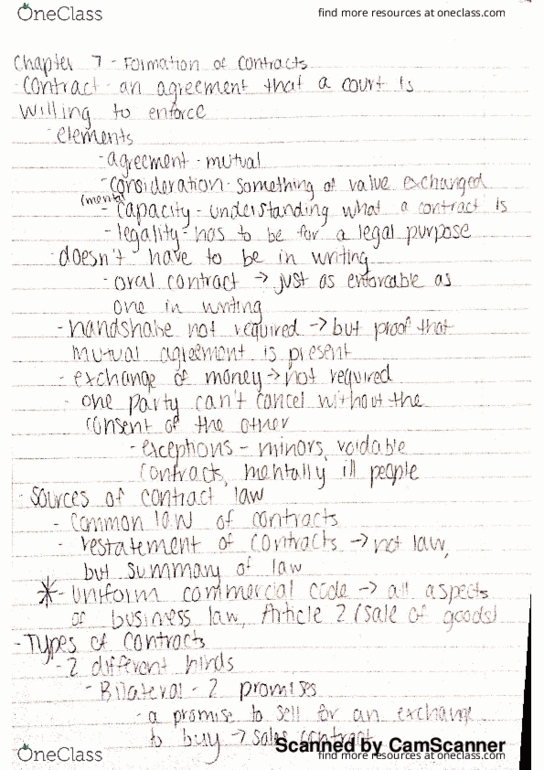 OneClass
find more resources at oneclass.com
Chapter 7 - Formation of contracts
- contract - an agreement that a court is
willing to enforce
- elements
- agreement - mutual
- consideration - something of value exchanged
(mental)
- capacity - understanding what a contract is
- legality - has to be for a legal purpose
- doesn't have to be in writing
- oral contract → just as enforcable as
one in writing
- handshake not required → but proof that
mutual agreement is present
- exchange of money → not required
- one party can't cancel without the
consent of the other
- exceptions - minors, voidable
contracts, mentally ill people
- Sources of contract law
- common law of contracts
- restatement of contracts → not law,
but summary of law
* - uniform commercial code → all aspects
of business law, Article 2 (sale of goods)
- Types of contracts
- 2 different kinds
- Bilateral - 2 promises
- a promise to sell for an exchange
to buy → sales contract
Scanned by CamScanner
OneClass
find more resources at oneclass.com